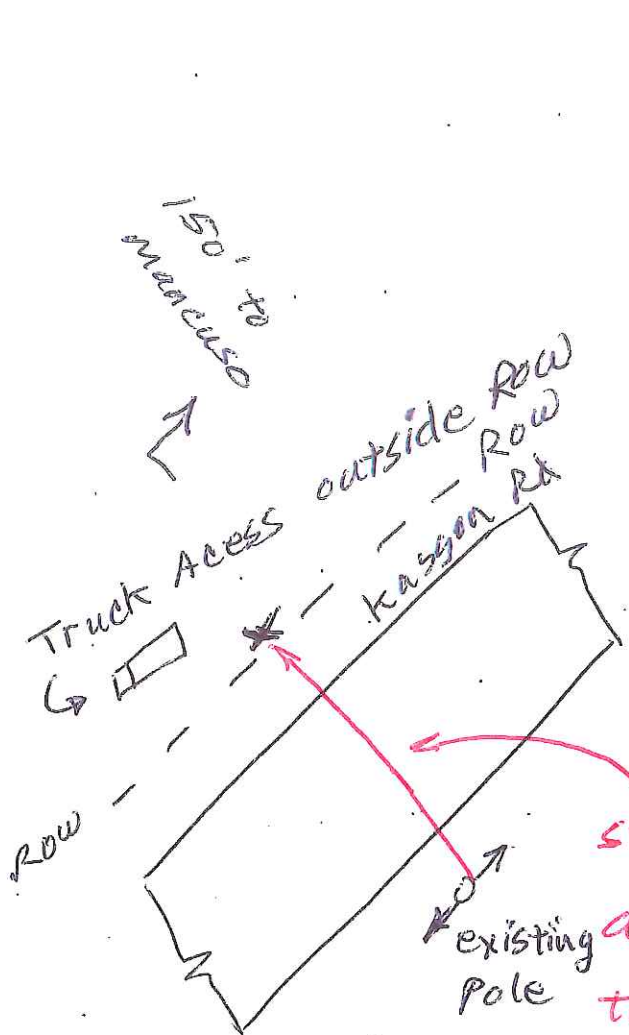 150' to
mancuso
Truck Acess outside ROW
ROW
ROW
existing
Pole
s
a
t